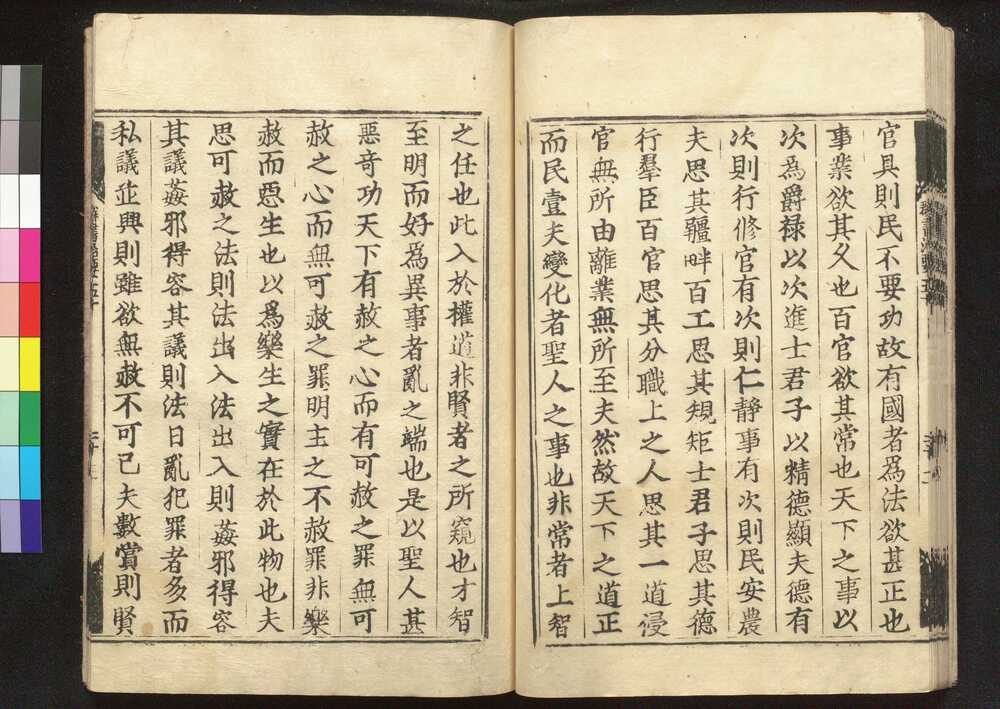 官具則民不要功故有國者為法欲甚正也
事業欲其久也百官欲其常也天下之事以
次為爵祿以次進士君子以精德顯夫德有
次則行修官有次則仁靜事有次則民安農
夫思其疆畔百工思其規矩士君子思其德
行羣臣百官思其分職上之人思其一道侵
官無所由離業無所至夫然故天下之道正
而民壹夫變化者聖人之事也非常者上智
之任也此入於權道非賢者之所窺也才智
至明而好為異事者亂之端也是以聖人甚
惡奇功天下有赦之心而有可赦之罪無可
赦之心而無可赦之罪明主之不赦罪非樂
赦而惡生也以為樂生之實在於此物也夫
思可赦之法則法出入法出入則姦邪得容
其議姦邪得容其議則法日亂犯罪者多而
私議並興則雖欲無赦不可已夫數賞則賢
羣書治要五十